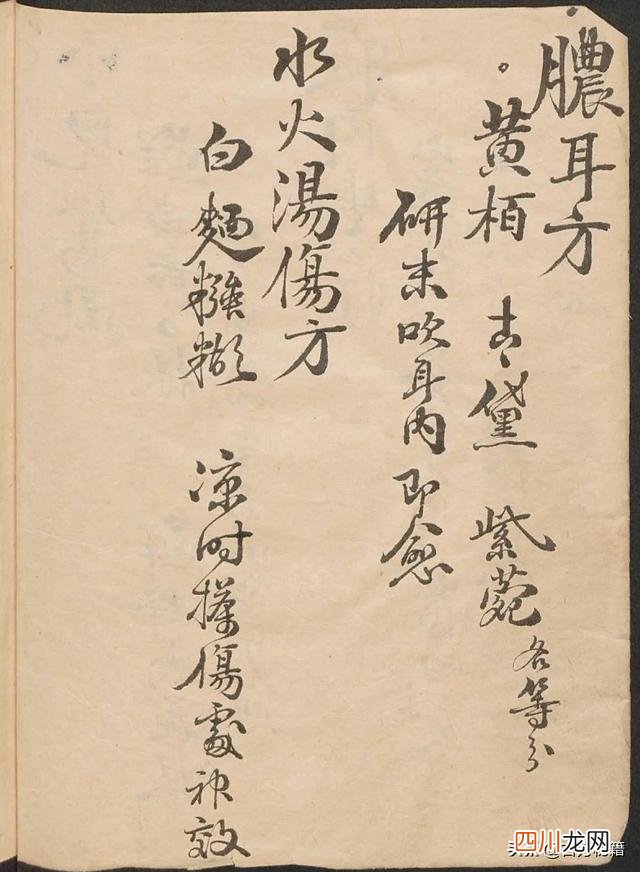 膿耳方
黃栢 青黛 紫菀 各等分
研末吹耳内即愈
水火湯傷方
白麵糨糊 凉时搽傷處神效
四川龙网